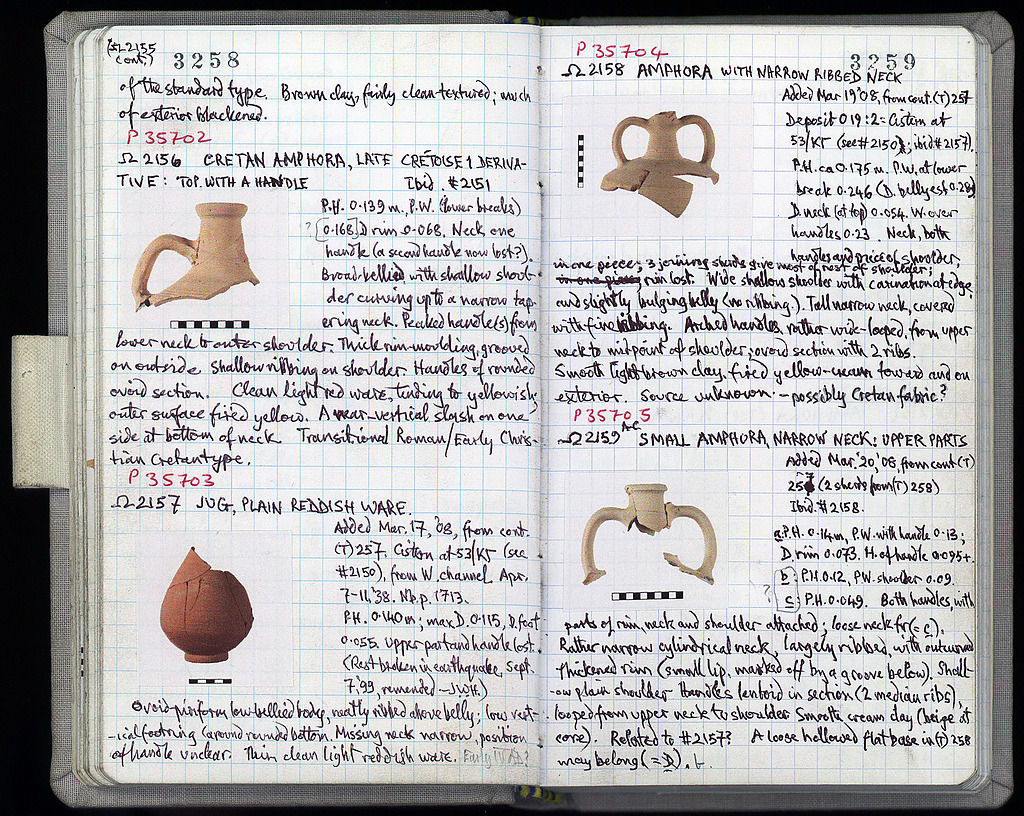 (Ω2155
cont.)
3258
of the standard type. Brown clay, fairly clean textured; much
of exterior blackened.
P 35702
Ω 2156 CRETAN AMPHORA, LATE CRÉTOISE 1 DERIVA-
TIVE: TOP WITH A HANDLE Ibid. #2151
P.H. 0.139 m., P.W. (lower breaks)
? [0.168] D rim 0.068. Neck one
handle (a second handle now lost?).
Broad-bellied with shallow shoul-
der curving up to a narrow tap-
ering neck. Peaked handle(s) from
lower neck to outer shoulder. Thick rim-moulding, grooved
on outside. Shallow ribbing on shoulder. Handles of rounded
ovoid section. Clean light red ware, tending to yellowish;
outer surface fired yellow. A near-vertical slash on one
side at bottom of neck. Transitional Roman/Early Chris-
tian Cretan type.
P 35703
Ω 2157 JUG, PLAIN REDDISH WARE.
Added Mar. 17, '08, from cont.
(T) 257. Cistern at 53/ΚΓ (see
#2150), from W. channel, Apr.
7-11,'38. Nb.p. 1713.
P.H. 0.140 m; max D. 0.115, D. foot
0.055. Upper part and handle lost.
(Rest broken in earthquake, Sept.
7,'99, remended – J.W.H.)
Ovoid-piriform low-bellied body, neatly ribbed above belly; low vert-
-ical footring around rounded bottom. Missing neck narrow, position
of handle unclear. Thin clean light reddish ware.
P 35704
3259
Ω 2158 AMPHORA WITH NARROW RIBBED NECK
Added Mar 19 '08, from cont. (T) 257
Deposit O 19:2 = Cistern at
53/ΚΓ (see #2150; ibid #2157).
P.H. ca 0.175 m. P.W. at lower
break 0.246 (D. belly est 0.28)
D neck (at top) 0.054. W. over
handles 0.23. Neck, both
handles and piece of shoulder,
in one piece; 3 joining sherds give most of rest of shoulder;
in one piece; rim lost. Wide shallow shoulder with carination at edge,
and slightly bulging belly (no ribbing). Tall narrow neck, covered
with fine ribbing. Arched handles, rather wide-looped, from upper
neck to midpoint of shoulder; ovoid section with 2 ribs.
Smooth light brown clay, fired yellow-cream toward and on
exterior. Source unknown – possibly Cretan fabric?
P 35705
A-C
Ω 2159 SMALL AMPHORA, NARROW NECK: UPPER PARTS
Added Mar. '20, '08, from cont (T)
257 (2 sherds from (T) 258)
Ibid. #2158.
a: P.H. 0.14 m, P.W. with handle 0.13;
D rim 0.073. H. of handle 0.095+.
b: P.H. 0.12, P.W. shoulder 0.09.
? c: P.H. 0.049. Both handles, with
parts of rim, neck and shoulder attached; loose neck fr (= c).
Rather narrow cylindrical neck, largely ribbed, with outturned
thickened rim (small lip, marked off by a groove below). Shall-
-ow plain shoulder. Handles lentoid in section (2 median ribs),
looped from upper neck to shoulder. Smooth cream clay (beige at
core). Related to #2157? A loose hollowed flat base in (T) 258
may belong (= D).